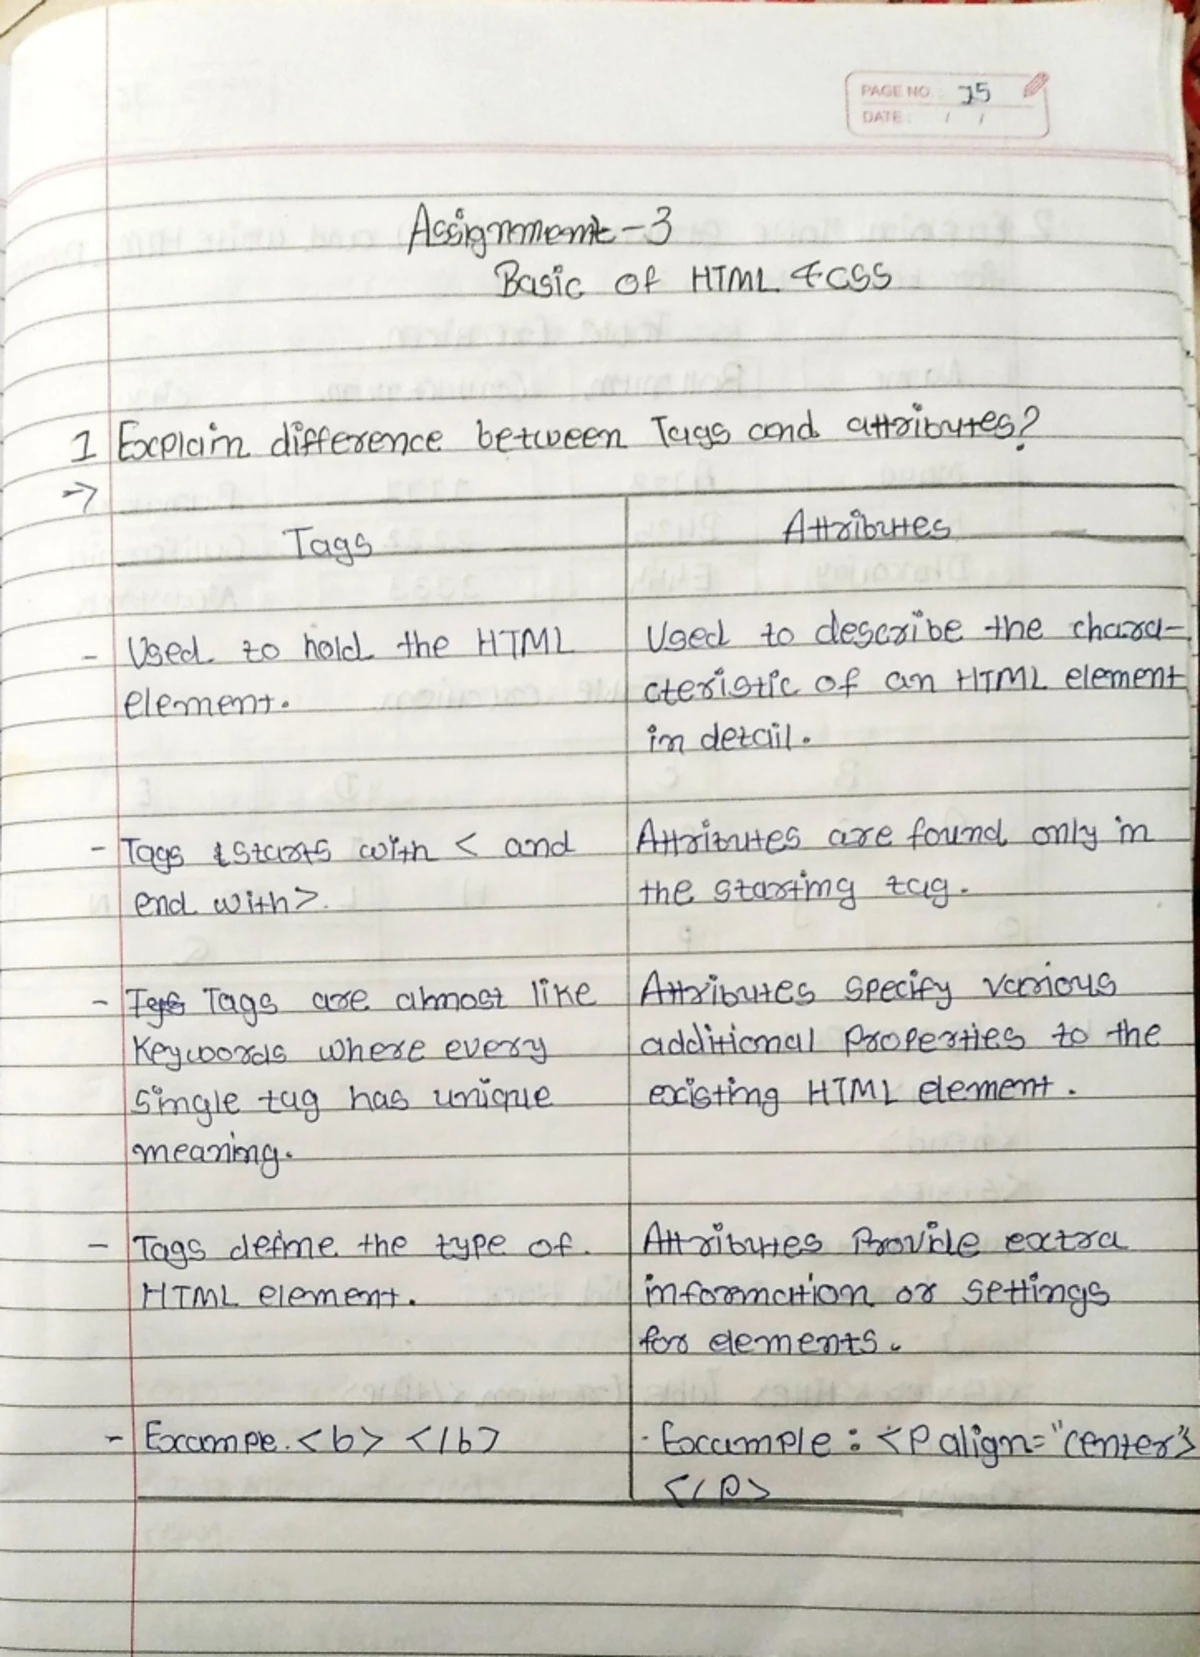 PAGE NO. : 15
DATE : / /
Assignment-3
Basic of HTML & CSS
1 Explain difference between Tags and attributes?
→
Tags
Attributes
- Used to hold the HTML
element.
Used to describe the chara-
cteristic of an HTML element
in detail.
- Tags starts with < and
end with >.
Attributes are found only in
the starting tag.
- Tags are almost like
Keywords where every
single tag has unique
meaning.
Attributes specify various
additional Properties to the
existing HTML element.
- Tags define the type of
HTML element.
Attributes Provide extra
information or settings
for elements.
- Exampe. <b> </b>
- Example : <P align="center">
</P>